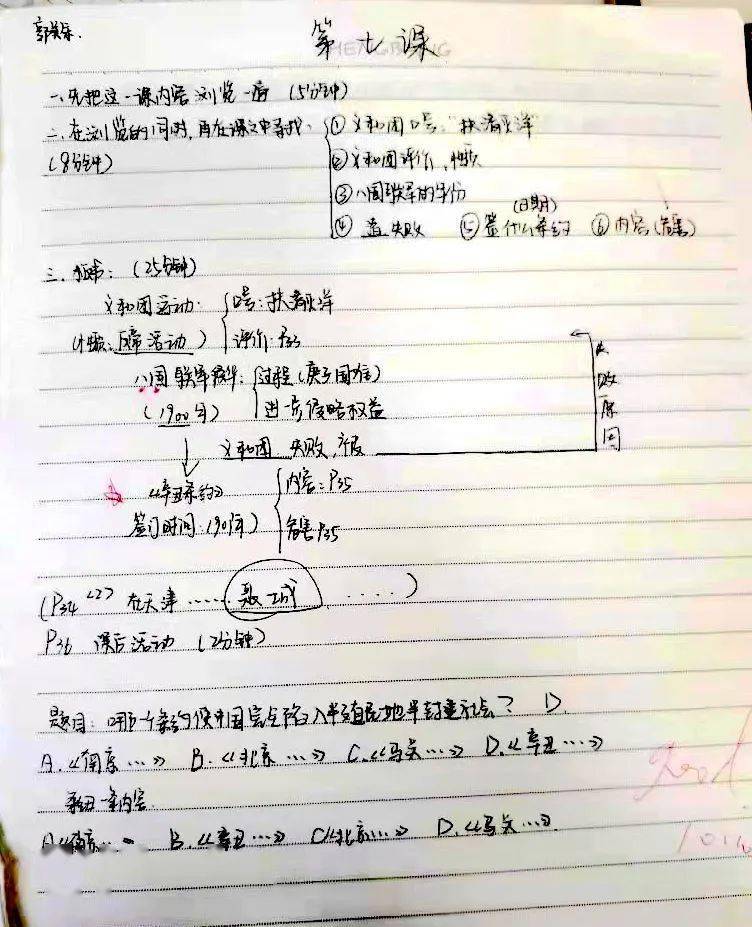 第七课
一、先把这一课内容浏览一遍 (5分钟)
二、在浏览的同时,再在课文中寻找: ①义和团口号:"扶清灭洋"
(8分钟) ②义和团评价、性质
③八国联军的年份
④ 失败 ⑤签什么条约 (日期) ⑥内容(危害)
三、板书: (25分钟)
义和团运动: 口号:扶清灭洋
(性质: 活动) 评价:P33
八国联军侵华: 过程(庚子国难)
(1900年) 进一步侵略权益
义和团 失败, 失败原因
《辛丑条约》 内容:P35
签订时间:1901年) 危害P35
(P34 <2> 在天津…… 聂士成 ……)
P36 课后活动 (2分钟)
题目:哪一个条约使中国完全陷入半殖民地半封建社会? D.
A.《南京…》 B.《北京…》 C.《马关…》 D.《辛丑…》
条内容.
A《南京… B.《辛丑…》 C《北京…》 D.《马关…》